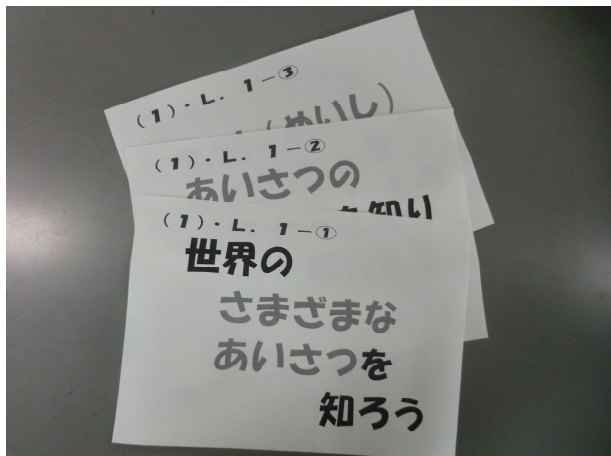 (1)・L. 1－③
(めいし)
(1)・L. 1－②
あいさつの
を知り
(1)・L. 1－①
世界の
さまざまな
あいさつを
知ろう